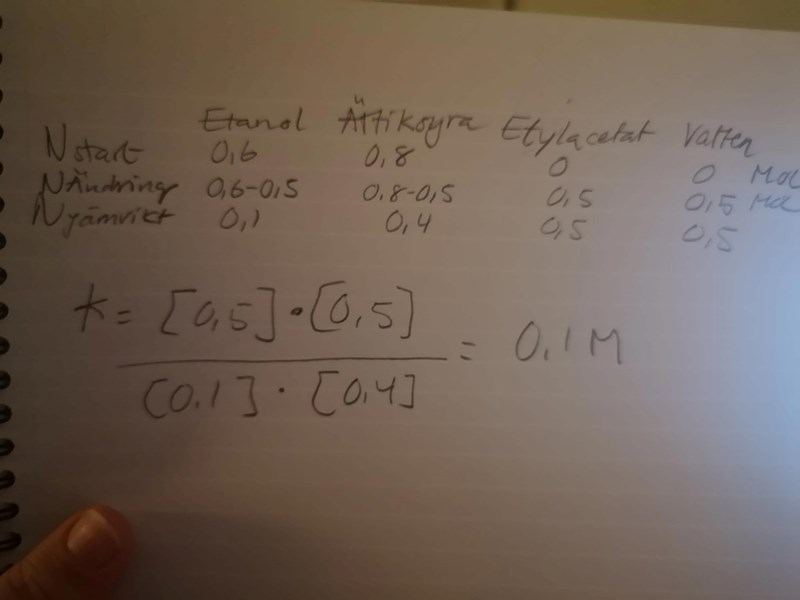 Etanol Ättiksyra Etylacetat Vatten
Nstart 0,6 0,8 0 0 Mol
NÄndring 0,6-0,5 0,8-0,5 0,5 0,5 Mol
Njämvikt 0,1 0,4 0,5 0,5
K= [0,5]·[0,5] = 0,1 M
[0.1]·[0,4]